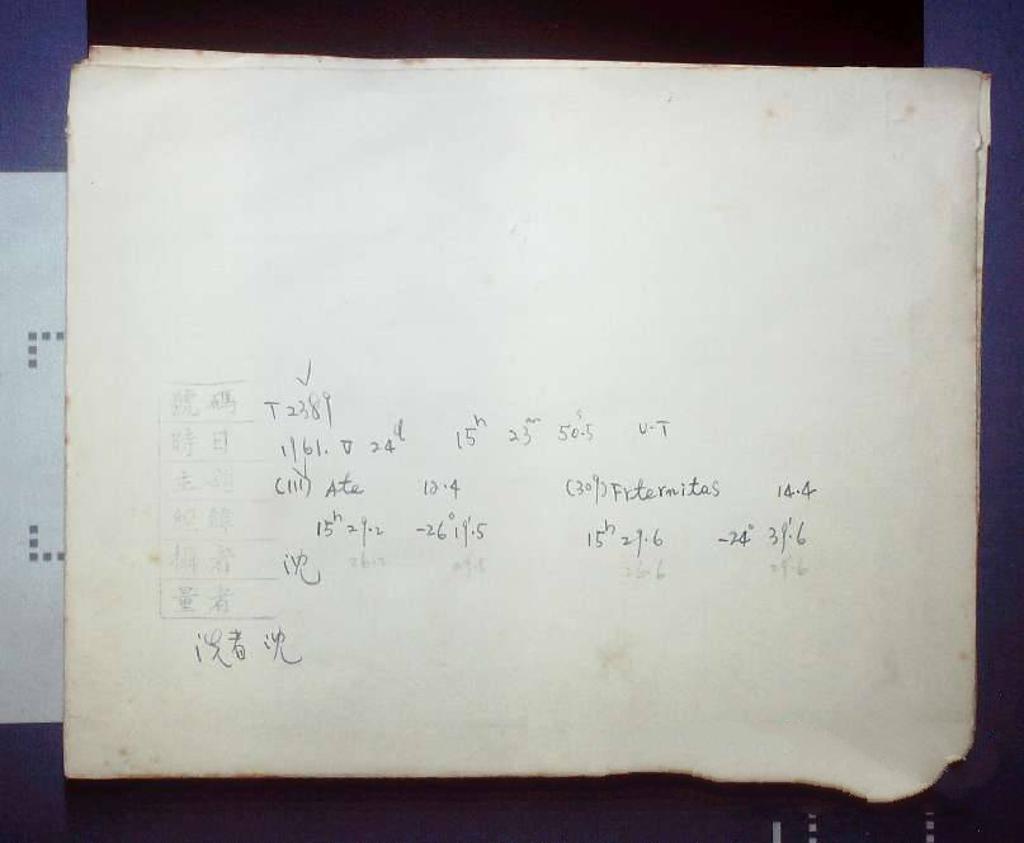 號碼 T 2389
時日 1961. V 24d 15h 23m 50s.5 U.T
(111) Ate 12.4 (309) Frternitas 14.4
紀錄 15h 29.2 -26°19'.5 15h 29.6 -24° 39'.6
攝者 沈 26.2 29.5 26.6 29.6
量者
洗者 沈